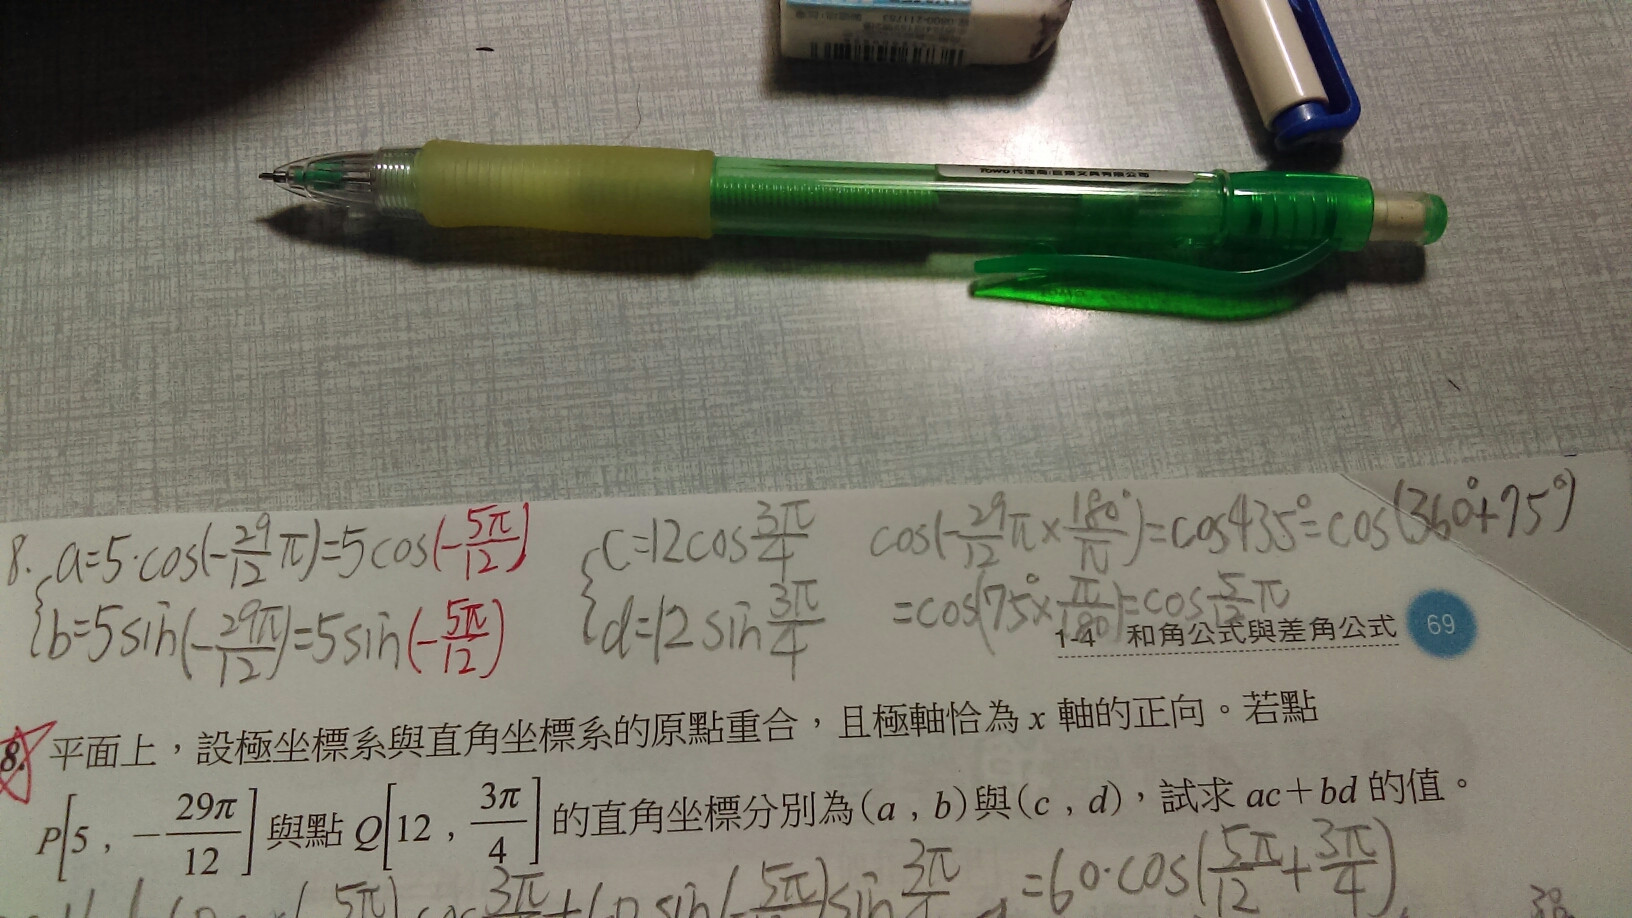 TOWO代理商:巨倫文具有限公司
8. a=5·cos(-29/12 π)=5cos(-5π/12)
b=5sin(-29π/12)=5sin(-5π/12)
c=12cos 3π/4
d=12sin 3π/4
cos(-29/12 π×180°/π)=cos435°=cos(360°+75°)
=cos(75°×π/180)=cos 5/12 π
1-4 和角公式與差角公式 69
8. 平面上，設極坐標系與直角坐標系的原點重合，且極軸恰為 x 軸的正向。若點
P[5 , -29π/12] 與點 Q[12 , 3π/4] 的直角坐標分別為(a , b)與(c , d)，試求 ac+bd 的值。
=60·cos(5π/12+3π/4)